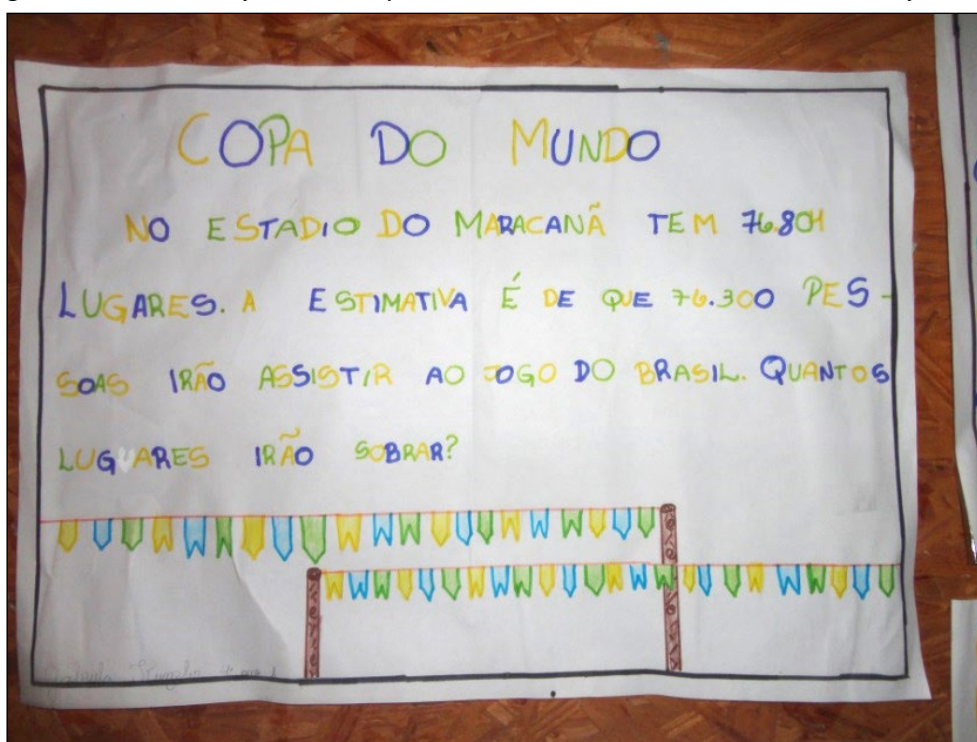 COPA DO MUNDO
NO ESTADIO DO MARACANÃ TEM 76.804
LUGARES. A ESTIMATIVA É DE QUE 76.300 PES-
SOAS IRÃO ASSISTIR AO JOGO DO BRASIL. QUANTOS
LUGARES IRÃO SOBRAR?